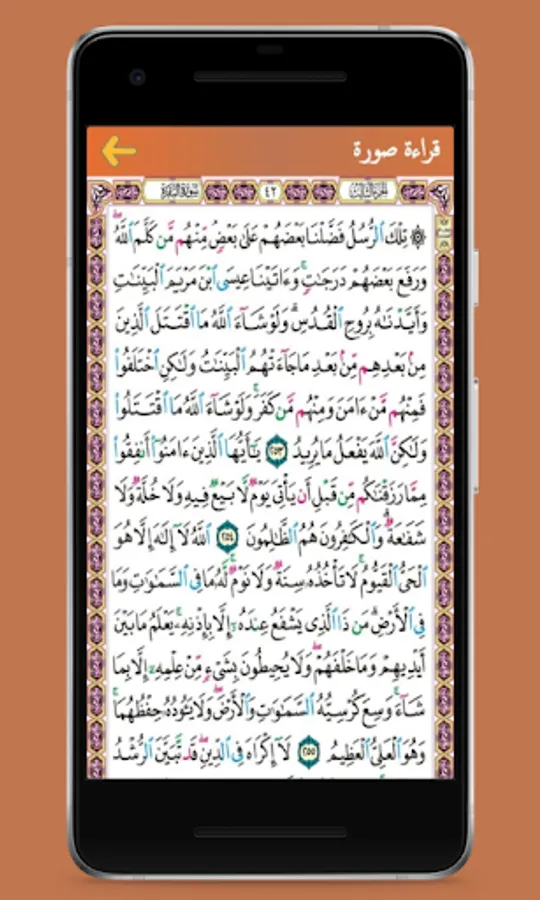 قراءة صورة
الجزء الثالث ٤٢ سورة البقرة
۞ تِلْكَ ٱلرُّسُلُ فَضَّلْنَا بَعْضَهُمْ عَلَىٰ بَعْضٍ مِّنْهُم مَّن كَلَّمَ ٱللَّهُ
وَرَفَعَ بَعْضَهُمْ دَرَجَٰتٍ وَءَاتَيْنَا عِيسَى ٱبْنَ مَرْيَمَ ٱلْبَيِّنَٰتِ
وَأَيَّدْنَٰهُ بِرُوحِ ٱلْقُدُسِ ۗ وَلَوْ شَآءَ ٱللَّهُ مَا ٱقْتَتَلَ ٱلَّذِينَ
مِنۢ بَعْدِهِم مِّنۢ بَعْدِ مَا جَآءَتْهُمُ ٱلْبَيِّنَٰتُ وَلَٰكِنِ ٱخْتَلَفُوا۟
فَمِنْهُم مَّنْ ءَامَنَ وَمِنْهُم مَّن كَفَرَ ۚ وَلَوْ شَآءَ ٱللَّهُ مَا ٱقْتَتَلُوا۟
وَلَٰكِنَّ ٱللَّهَ يَفْعَلُ مَا يُرِيدُ ٢٥٣ يَٰٓأَيُّهَا ٱلَّذِينَ ءَامَنُوٓا۟ أَنفِقُوا۟
مِمَّا رَزَقْنَٰكُم مِّن قَبْلِ أَن يَأْتِىَ يَوْمٌ لَّا بَيْعٌ فِيهِ وَلَا خُلَّةٌ وَلَا
شَفَٰعَةٌ ۗ وَٱلْكَٰفِرُونَ هُمُ ٱلظَّٰلِمُونَ ٢٥٤ ٱللَّهُ لَآ إِلَٰهَ إِلَّا هُوَ
ٱلْحَىُّ ٱلْقَيُّومُ ۚ لَا تَأْخُذُهُۥ سِنَةٌ وَلَا نَوْمٌ ۚ لَّهُۥ مَا فِى ٱلسَّمَٰوَٰتِ وَمَا
فِى ٱلْأَرْضِ ۗ مَن ذَا ٱلَّذِى يَشْفَعُ عِندَهُۥٓ إِلَّا بِإِذْنِهِۦ ۚ يَعْلَمُ مَا بَيْنَ
أَيْدِيهِمْ وَمَا خَلْفَهُمْ ۖ وَلَا يُحِيطُونَ بِشَىْءٍ مِّنْ عِلْمِهِۦٓ إِلَّا بِمَا
شَآءَ ۚ وَسِعَ كُرْسِيُّهُ ٱلسَّمَٰوَٰتِ وَٱلْأَرْضَ ۖ وَلَا يَـُٔودُهُۥ حِفْظُهُمَا ۚ
وَهُوَ ٱلْعَلِىُّ ٱلْعَظِيمُ ٢٥٥ لَآ إِكْرَاهَ فِى ٱلدِّينِ ۖ قَد تَّبَيَّنَ ٱلرُّشْدُ